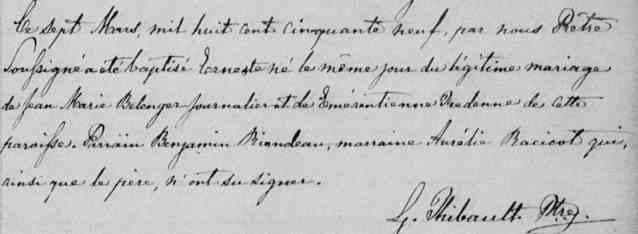 Ce sept Mars, mil huit cent cinquante neuf, par nous Prêtre
Soussigné a été baptisé Ernest né le même jour du légitime mariage
de Jean Marie Belenger journalier et de Emérentienne de cette
paroisse. Parrain Benjamin Riendeau, marraine Aurélie Racicot qui,
ainsi que le père, n'ont su signer.
G. Thibault Ptre.